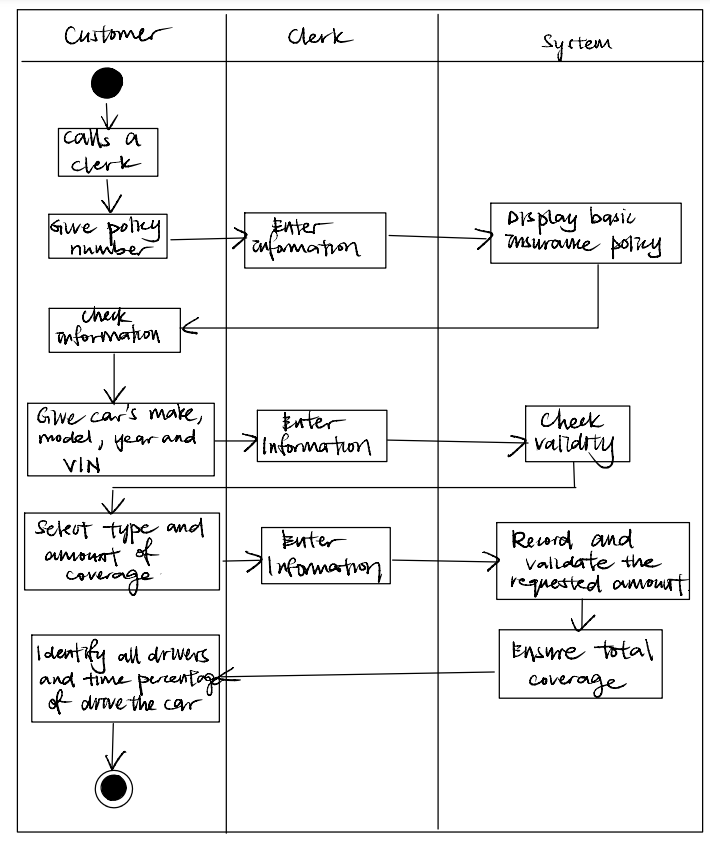 Customer
Clerk
System
Calls a
clerk
Give policy
number
Enter
information
Display basic
insurance policy
Check
information
Give car's make,
model, year and
VIN
Enter
Information
Check
validity
Select type and
amount of
coverage
Enter
Information
Record and
validate the
requested amount
Ensure total
coverage
Identify all drivers
and time percentage
of drove the car